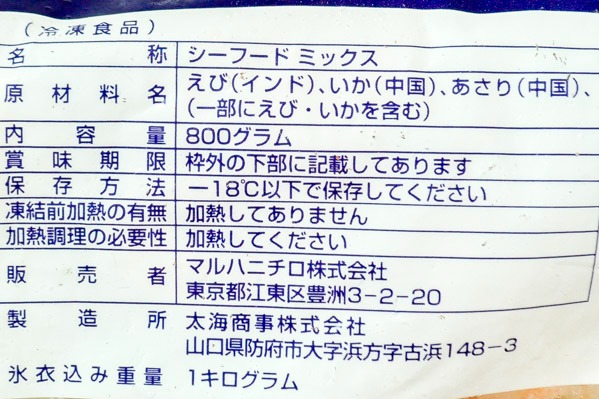 (冷凍食品)
名称 シーフード ミックス
原材料名 えび(インド)、いか(中国)、あさり(中国)、
(一部にえび・いかを含む)
内容量 800グラム
賞味期限 枠外の下部に記載してあります
保存方法 －18℃以下で保存してください
凍結前加熱の有無 加熱してありません
加熱調理の必要性 加熱してください
販売者 マルハニチロ株式会社
東京都江東区豊洲3-2-20
製造所 太海商事株式会社
山口県防府市大字浜方字古浜148-3
氷衣込み重量 1キログラム